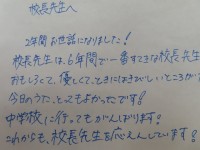 校長先生へ
2年間お世話になりました!
校長先生は、6年間で一番すてきな校長先
おもしろくて、優しくて、ときにはきびしいところが
今日のうた、とってもよかったです!
中学校に行ってもがんばります。
これからも、校長先生を応えんしています!